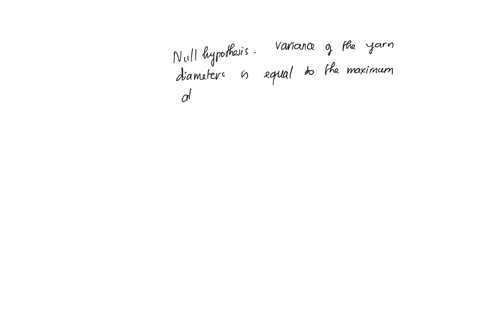 Null hypothesis. Variance of the yarn
diameters is equal to the maximum
al